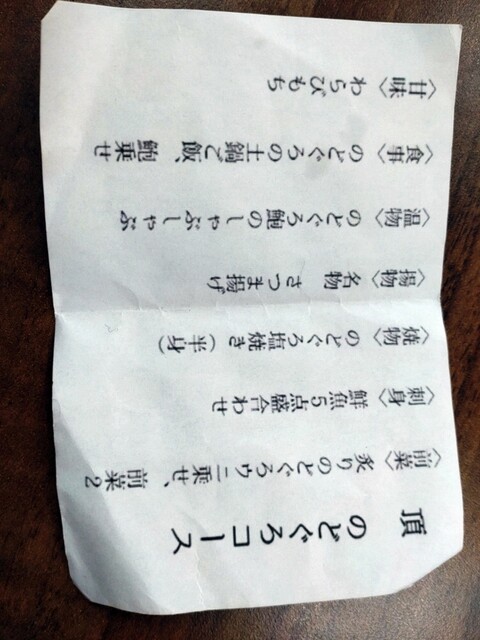 頂　のどぐろコース
〈前菜〉炙りのどぐろウニ乗せ、前菜2
〈刺身〉鮮魚5点盛合わせ
〈焼物〉のどぐろ塩焼き(半身)
〈揚物〉名物　さつま揚げ
〈温物〉のどぐろ鮑のしゃぶしゃぶ
〈食事〉のどぐろの土鍋ご飯、鮑乗せ
〈甘味〉わらびもち